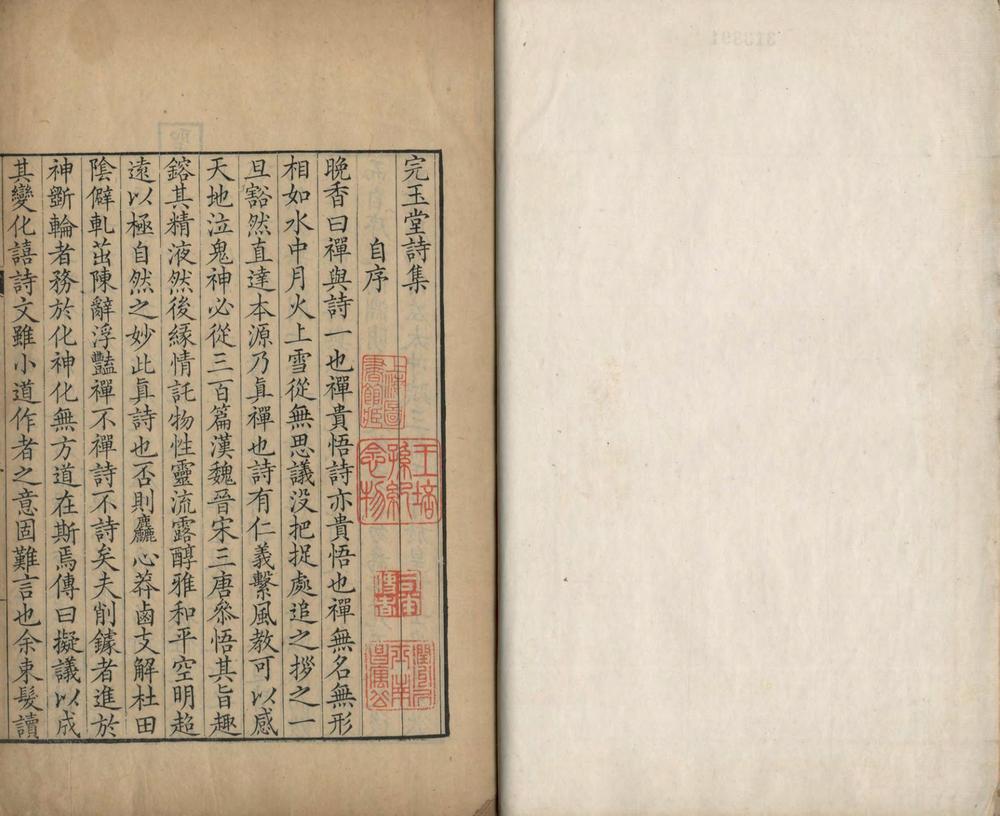 完玉堂詩集
自序
晚香曰禪與詩一也禪貴悟詩亦貴悟也禪無名無形
相如水中月火上雪從無思議没把捉處追之拶之一
旦豁然直達本源乃真禪也詩有仁義繫風教可以感
天地泣鬼神必從三百篇漢魏晉宋三唐叅悟其旨趣
鎔其精液然後緣情託物性靈流露醇雅和平空明超
遠以極自然之妙此真詩也否則麤心莽鹵支解杜田
陰僻軋茁陳辭浮豔禪不禪詩不詩矣夫削鐻者進於
神斵輪者務於化神化無方道在斯焉傳曰擬議以成
其變化譆詩文雖小道作者之意固難言也余束髮讀
上海圖書館藏
王培孫紀念物
313891